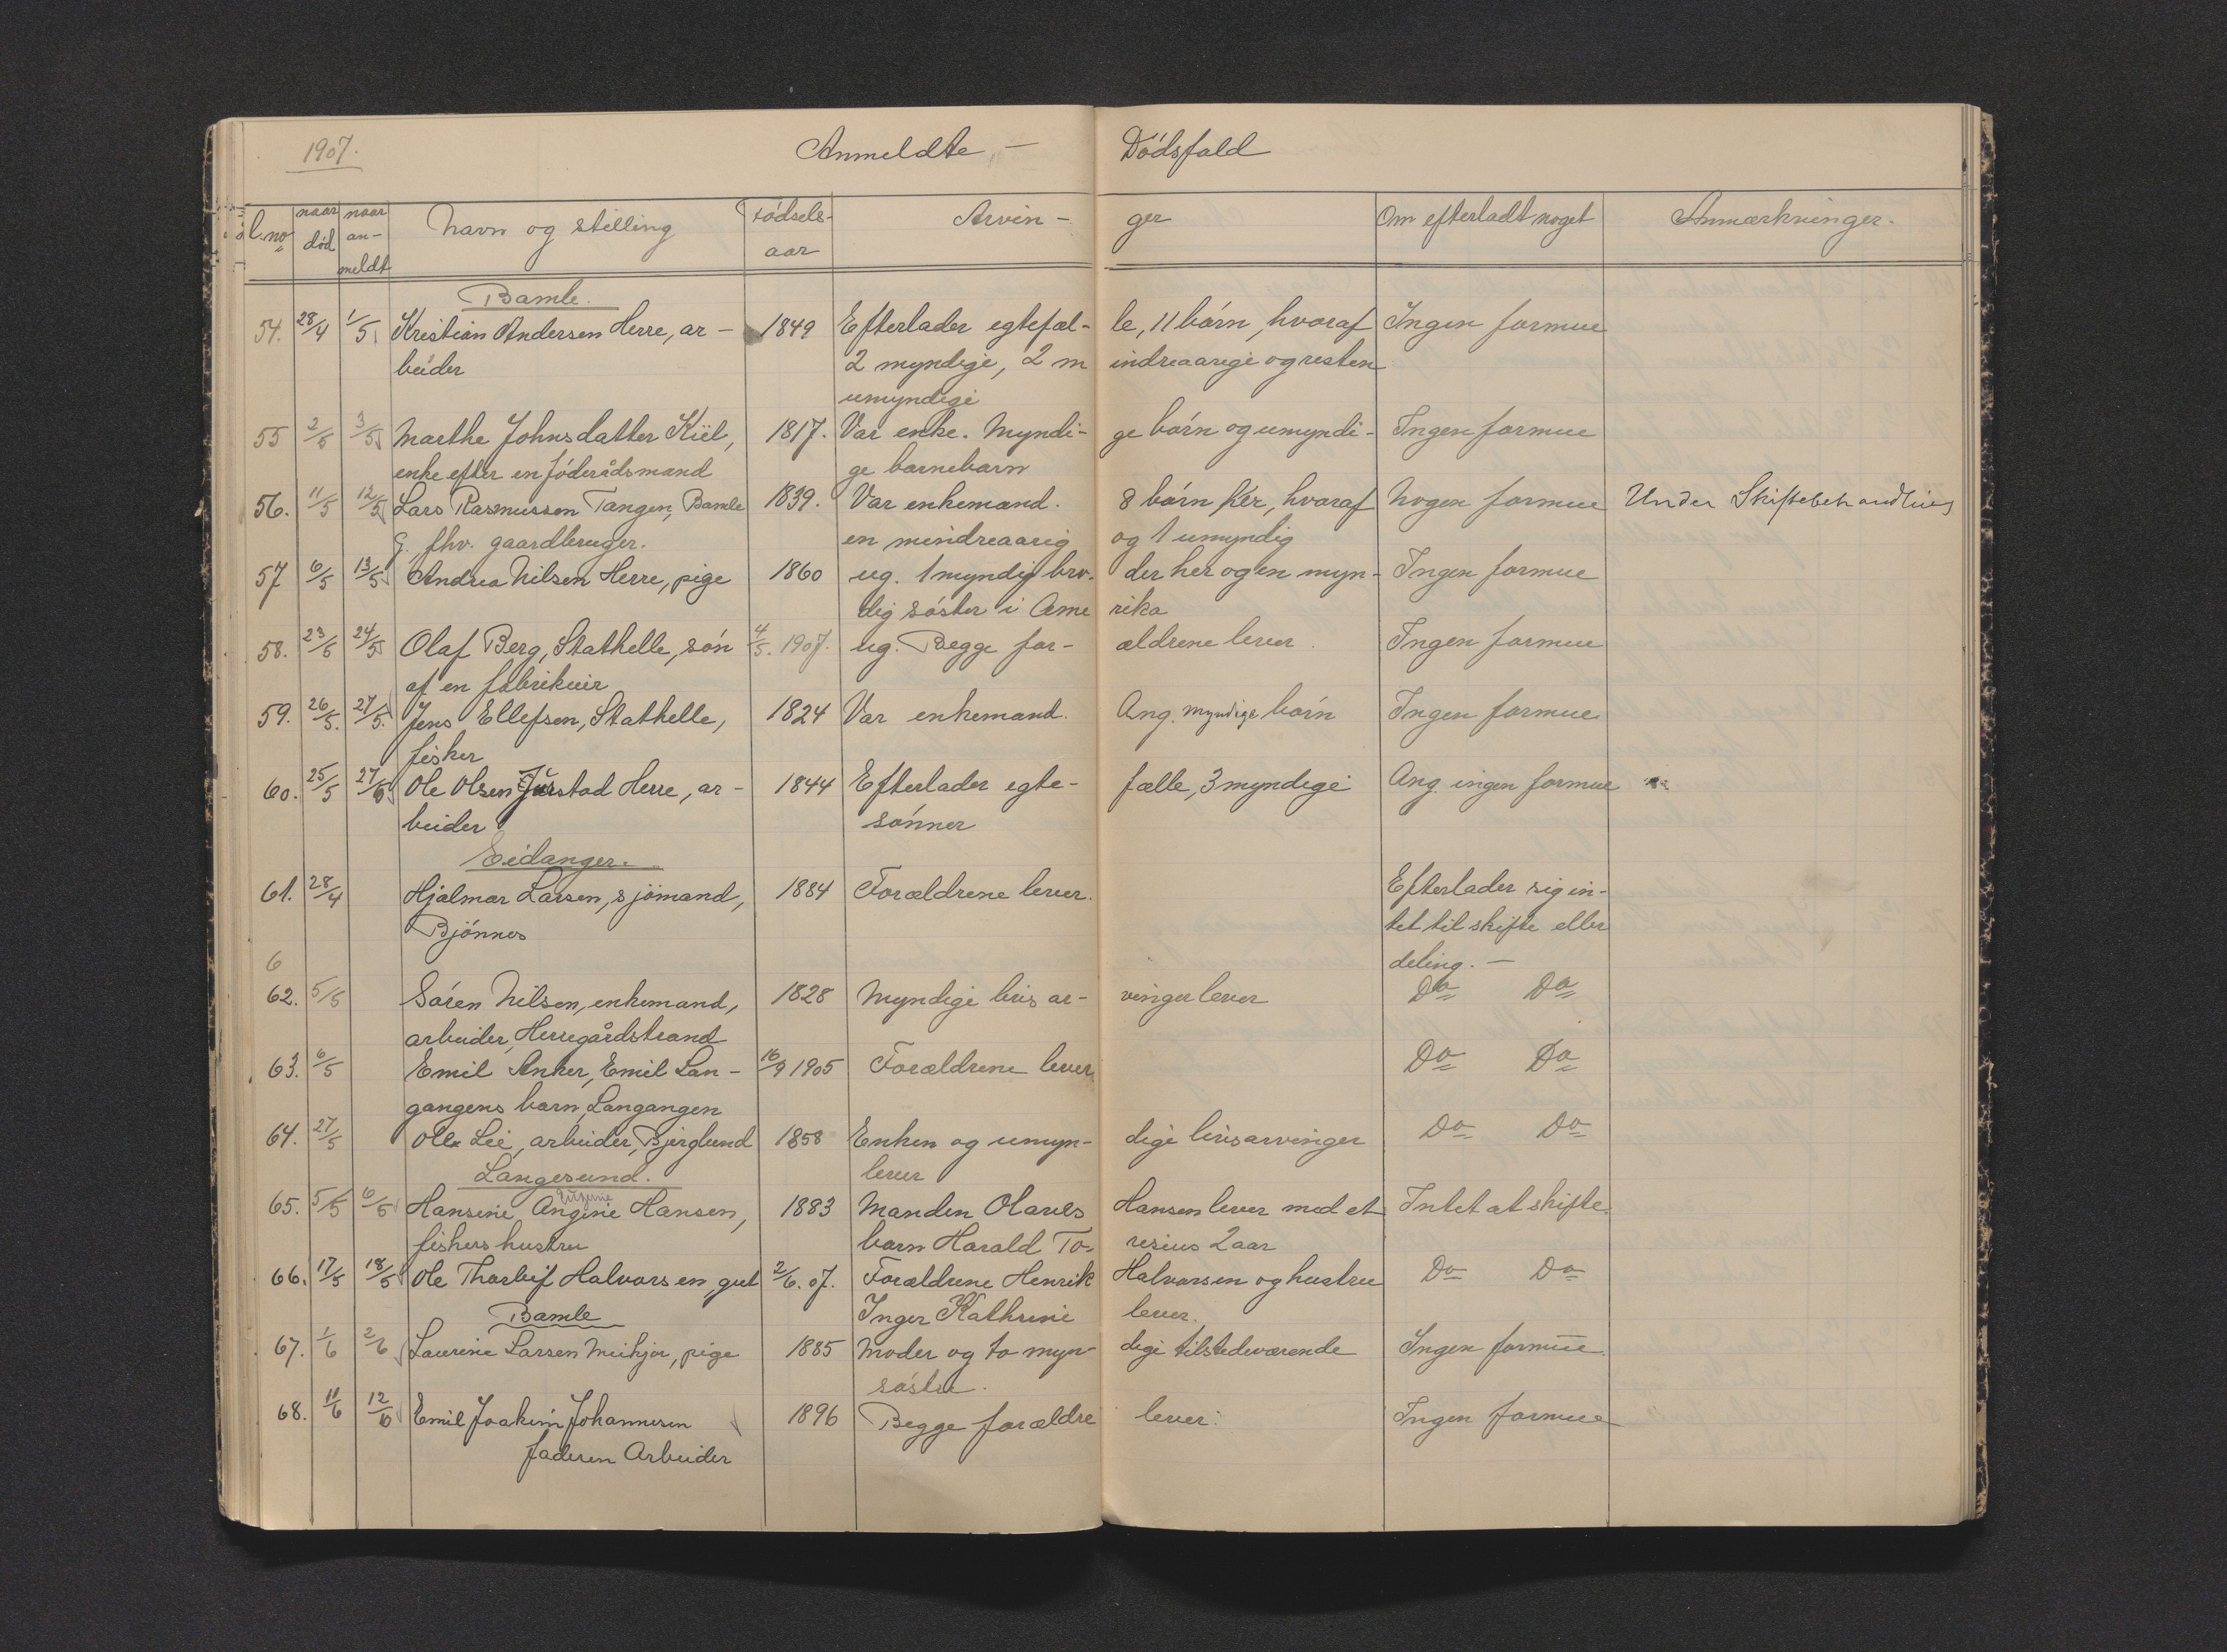 1907.
Anmeldte - Dödsfald
l. no naar död naar an-meldt Navn og stilling Fødsels-aar Arvin-ger Om efterladt noget Anmærkninger.
Bamle.
54. 28/4 1/5 Kristian Andersen Herre, ar- 1849 Efterlader egtefæl-le, 11 börn, hvoraf Ingen formue
beider 2 myndige, 2 mindreaarige og resten
umyndige
55 2/5 3/5 Marthe Johnsdatter Kiil, 1817. Var enke. Myndi-ge börn og umyndi- Ingen formue
enke efter en föderådsmand ge barnebarn
56. 11/5 12/5 Lars Rasmussen Tangen, Bamle 1839. Var enkemand. 8 börn her, hvoraf Nogen formue Under Skiftebehandling
G. fhv. gaardbruger. en mindreaarig og 1 umyndig
57 6/5 13/5 Andrea Nilsen Herre, pige 1860 ug. 1 myndig bro-der her og en myn- Ingen formue
dig söster i Amerika
58. 23/5 24/5 Olaf Berg, Stathelle, sön 4/5. 1907. ug. Begge for-ældrene lever. Ingen formue
af en fabrikeier
59. 26/5. 27/5. Jens Ellefsen, Stathelle, 1824 Var enkemand. Ang. myndige börn Ingen formue
fisker
60. 25/5 27/5 Ole Olsen Herre, ar- 1844 Efterlader egte-fælle, 3 myndige Ang. ingen formue
beider sönner
Eidanger.
61. 28/4 Hjalmar Larsen, sjömand, 1884 Forældrene lever. Efterlader sig in-
Bjönnes tet til skifte eller
6 deling. -
62. 5/5 Sören Nilsen, enkemand, 1828 Myndige livsar-vinger lever Do Do
arbeider, Herregårdstrand
63. 6/5 Emil Anker, Emil Lan- 16/9 1905 Forældrene lever. Do Do
gangens barn, Langangen
64. 27/5 Ole Lie, arbeider, Bjerglund 1858 Enken og umyn-dige livsarvinger Do Do
lever
Langesund.
65. 5/5 6/5 Hansine Angine Hansen, 1883 Manden Olaves Hansen lever med et Intet at skifte.
fiskers hustru barn Harald To-resius 2 aar
66. 17/5 18/5 Ole Thorleif Halvorsen, gut 2/6. 07. Forældrene Henrik Halvorsen og hustru Do Do
Inger Kathrine lever.
Bamle
67. 1/6 2/6 Laurine Larsen Meihjor, pige 1885 Moder og to myn-dige tilstedeværende Ingen formue.
söstre.
68. 11/6 12/6 Emil Joakim Johannesen 1896 Begge forældre lever. Ingen formue
faderen Arbeider